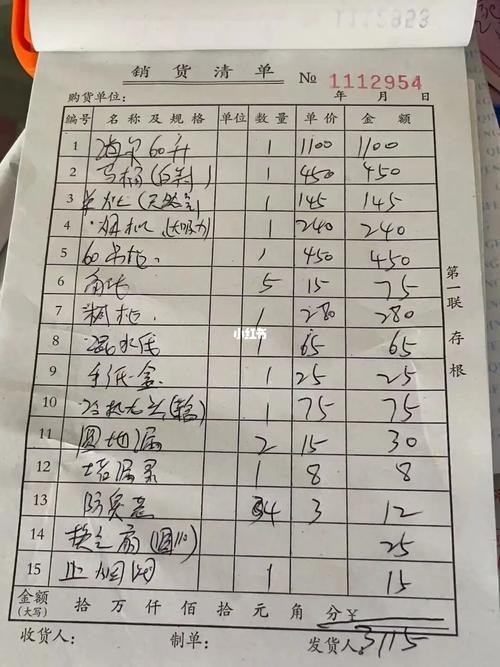 销货清单 № 1112954
购货单位： 年 月 日
编号 名称及规格 单位 数量 单价 金额
1 海尔60升 1 1100 1100
2 马桶( ) 1 450 450
3 (天然气) 1 145 145
4 烟机(大吸力) 1 240 240
5 60吊柜. 1 450 450
6 角阀 5 15 75
7 1 280 280
8 混水阀 1 65 65
9 手纸盒 1 25 25
10 1 75 75
11 圆地漏 2 15 30
12 地漏 1 8 8
13 防臭盖 4 3 12
14 换气扇(圆110) 25
15 止烟阀 1 15
金额(大写) 拾 万 仟 佰 拾 元 角 分 ¥ 3115
收货人： 制单： 发货人：
第一联 存根
小红书